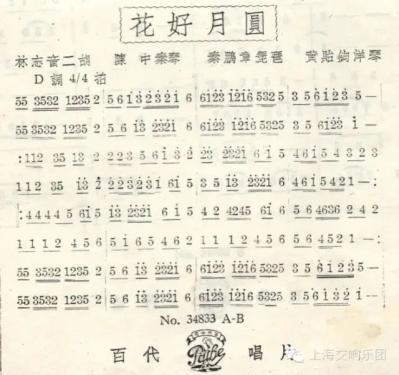 花好月圓
林志音二胡 陳中秦琴 秦鵬章琵琶 黃貽鈞洋琴
D 調 4/4 拍
55 3532 1235 2 | 5 6 1 3 2321 6 | 6123 1216 5325 | 3 5 6123 5 —
55 3532 1235 2 | 5 6 13 2321 6 | 6123 1216 5325 | 3 5 6123 1 —
:112 35 13 2 | 2 2 3 5 6 1 3 2 | 23 2321 6 1 5 | 4 6 1 5 4 3 2 3
1 1 2 35 13 2 | 2 2 3 2 3 1 6 1 5 | 3 5 13 2321 6 | 4 6 4521 —:
:4 4 4 4 5 6 1 5 | 13 2321 6 1 5 | 4 2 4245 6 1 | 5 6 4636 2 4 2
1 1 1 2 4 5 6 | 5 1 6 5 4 6 2 | 1 1 1 2 4 5 6 | 5 6 4 5 2 1 —:
55 3532 1235 2 | 5 6 13 2321 6 | 6123 1216 5325 | 3 5 6 1 2 3 5 —
55 3532 1235 2 | 5 6 13 2321 6 | 6123 1216 5325 | 3 5 6 1 3 2 1 —
No. 34833 A-B
百代 Pathe 唱片
上海交响乐团